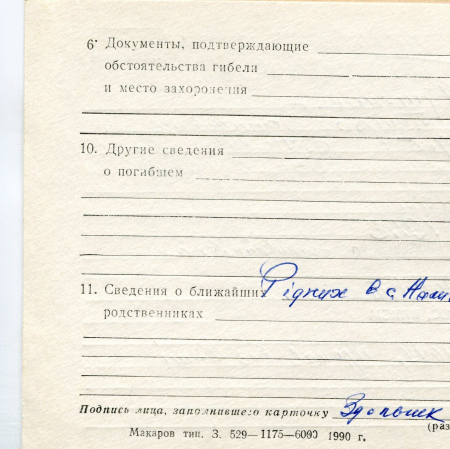 6. Документы, подтверждающие
обстоятельства гибели
и место захоронения
10. Другие сведения
о погибшем
11. Сведения о ближайших Рідних в с.
родственниках
Подпись лица, заполнившего карточку
(раз
Макаров тип. З. 529—1175—6000 1990 г.